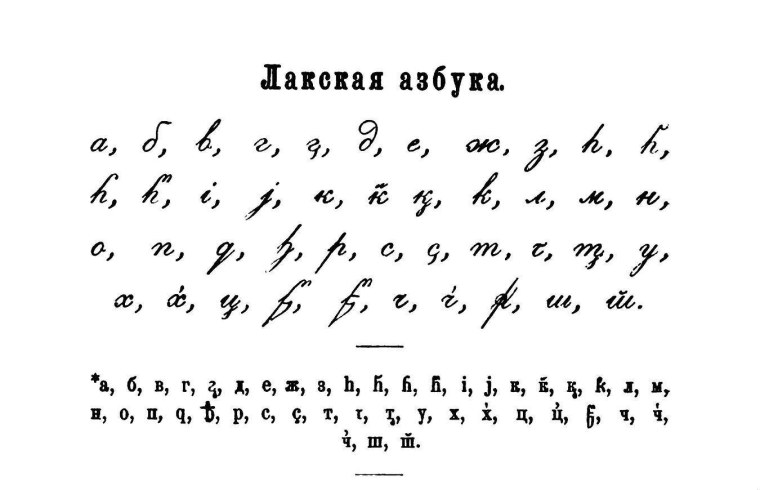 Лакская азбука.
а, б, в, г, г̧, д, е, ж, з, һ, һ̄,
ɦ, ɦ̄, і, ј, к, к̄, қ, ƙ, л, м, н,
о, п, q, ꚕ, р, с, ҫ, т, τ, т̨, у,
х, х̓, ц, ч, ш, ш̄.
*а, б, в, г, г̧, д, е, ж, з, һ, һ̄, ɦ, ɦ̄, і, ј, к, к̄, қ, ƙ, л, м,
н, о, п, q, ꚕ, р, с, ҫ, т, τ, т̨, у, х, х̓, ц, ц̓, ч, ч̓,
ч̓, ш, ш̄.